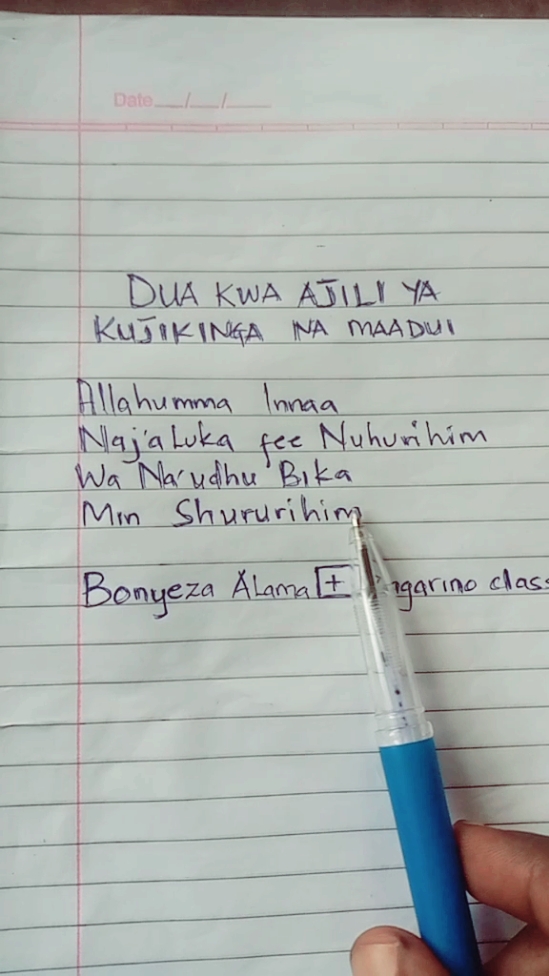 Date__/__/____
DUA KWA AJILI YA
KUJIKINGA NA MAADUI
Allahumma Innaa
Naj'aluka fee Nuhurihim
Wa Na'udhu Bika
Min Shururihim
Bonyeza Alama + class